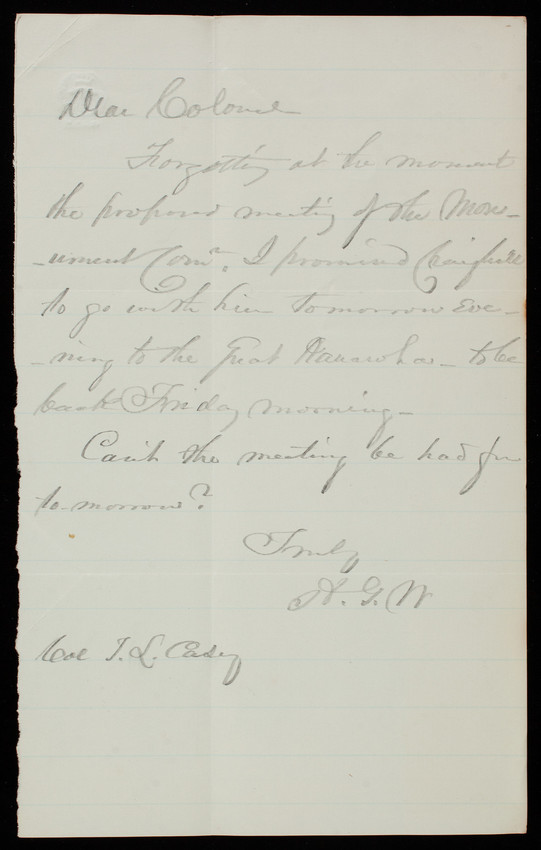 Dear Colonel
Forgetting at the moment
the proposed meeting of the Mon-
-ument Comn. I promised Craighill
to go with him tomorrow eve-
-ning to the Great Kanawha - to be
back Friday morning -
Can't the meeting be had for
to-morrow?
Truly
H. G. W
Col T. L. Casey